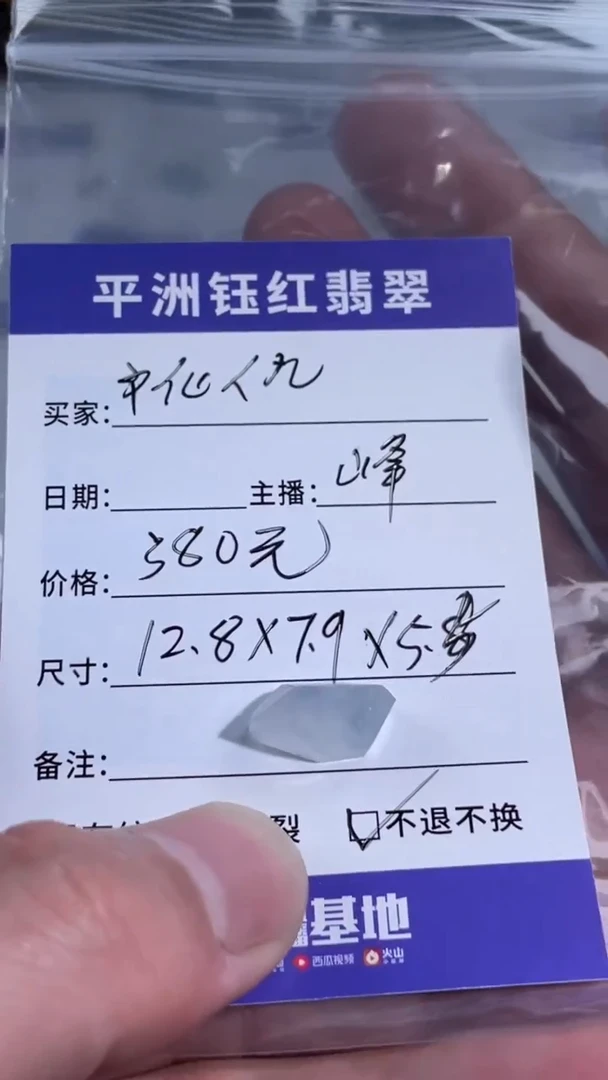 平洲钰红翡翠
买家:
日期: 主播: 山峰
价格: 380元
尺寸: 12.8X7.9X5.8
备注:
裂 不退不换
基地
西瓜视频 火山